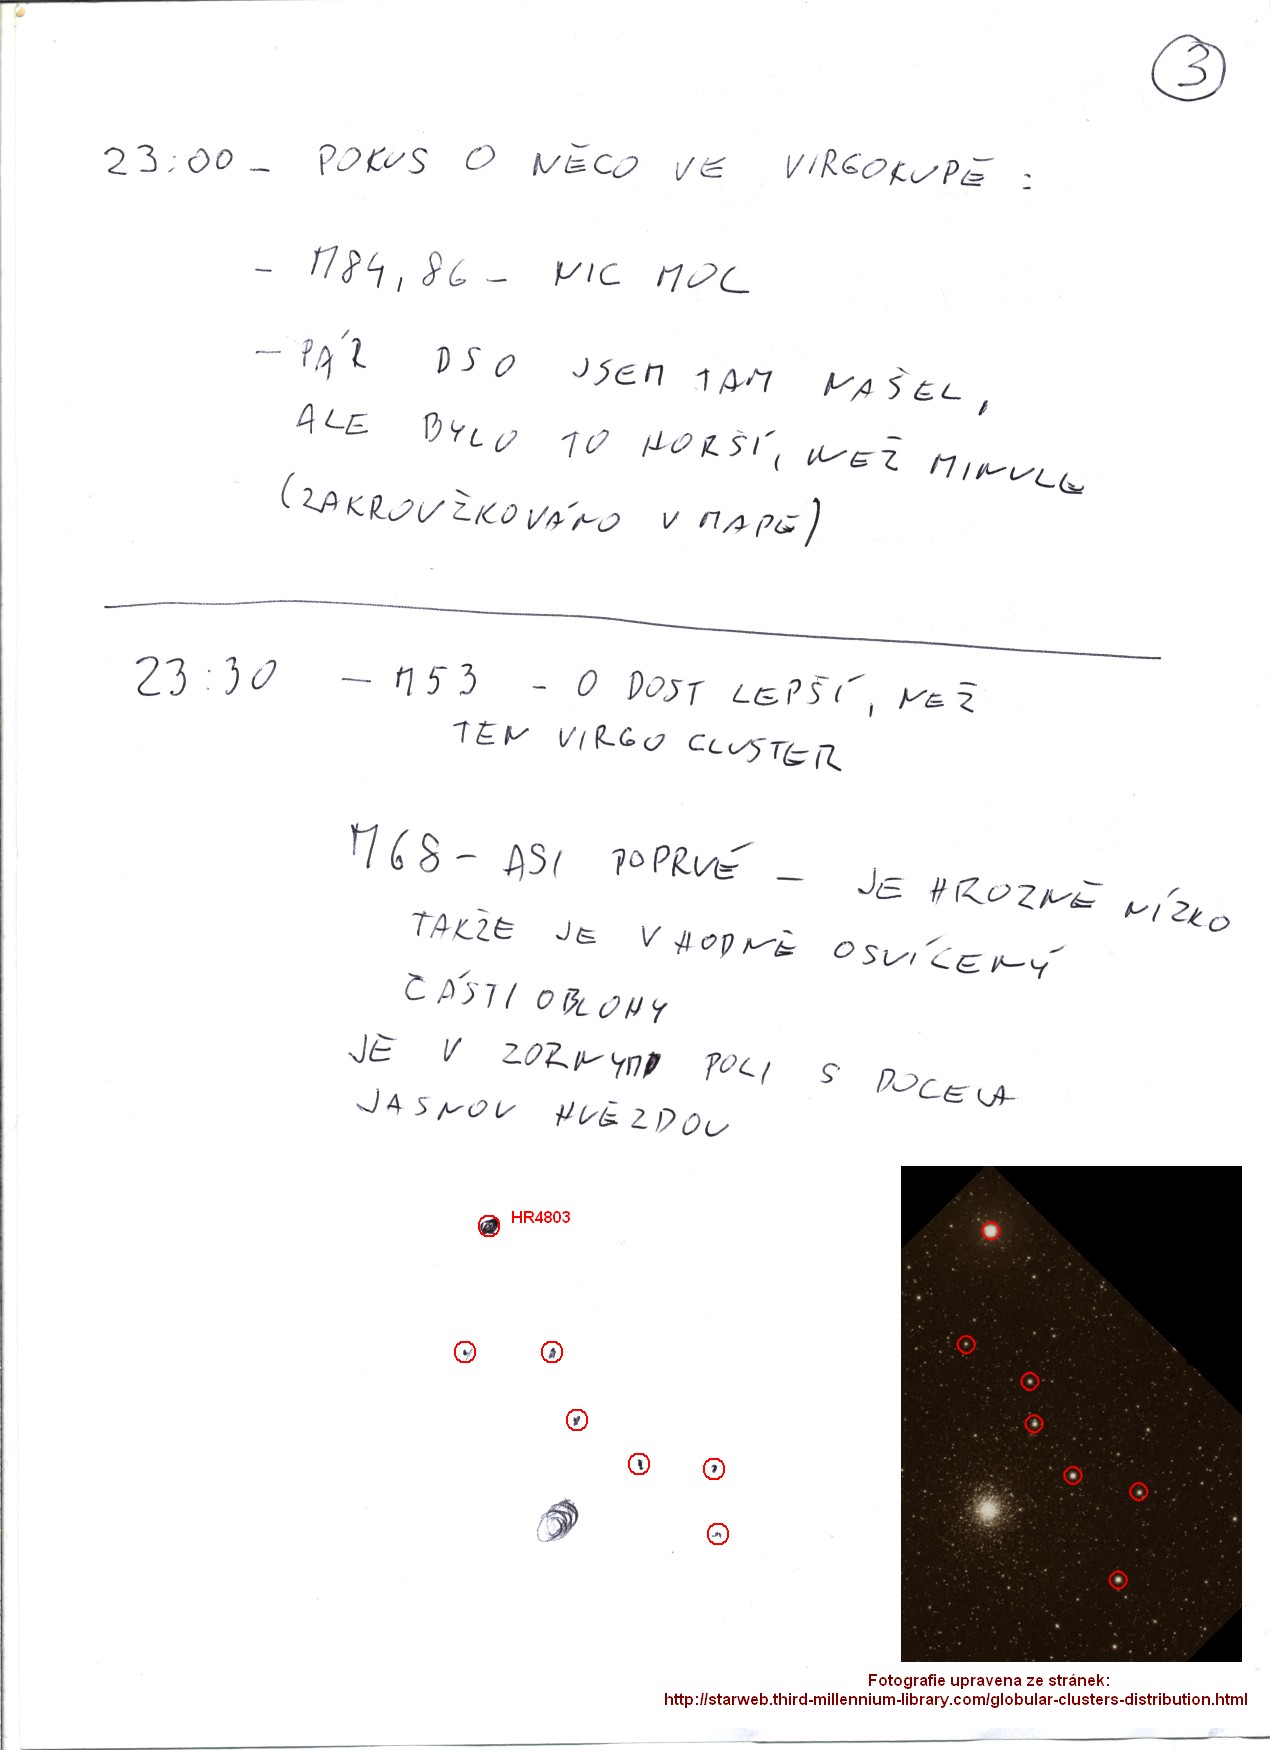 3
23:00 - POKUS O NĚCO VE VIRGOKUPĚ :
- M84, 86 - NIC MOC
- PÁR DSO JSEM TAM NAŠEL,
ALE BYLO TO HORŠÍ, NEŽ MINULE
(ZAKROUŽKOVÁNO V MAPĚ)
23:30 - M53 - O DOST LEPŠÍ, NEŽ
TEN VIRGO CLUSTER
M68 - ASI POPRVÉ - JE HROZNĚ NÍZKO
TAKŽE JE V HODNĚ OSVÍCENÝ
ČÁSTI OBLOHY
JE V ZORNÝM POLI S DOCELA
JASNOU HVĚZDOU
HR4803
Fotografie upravena ze stránek:
http://starweb.third-millennium-library.com/globular-clusters-distribution.html